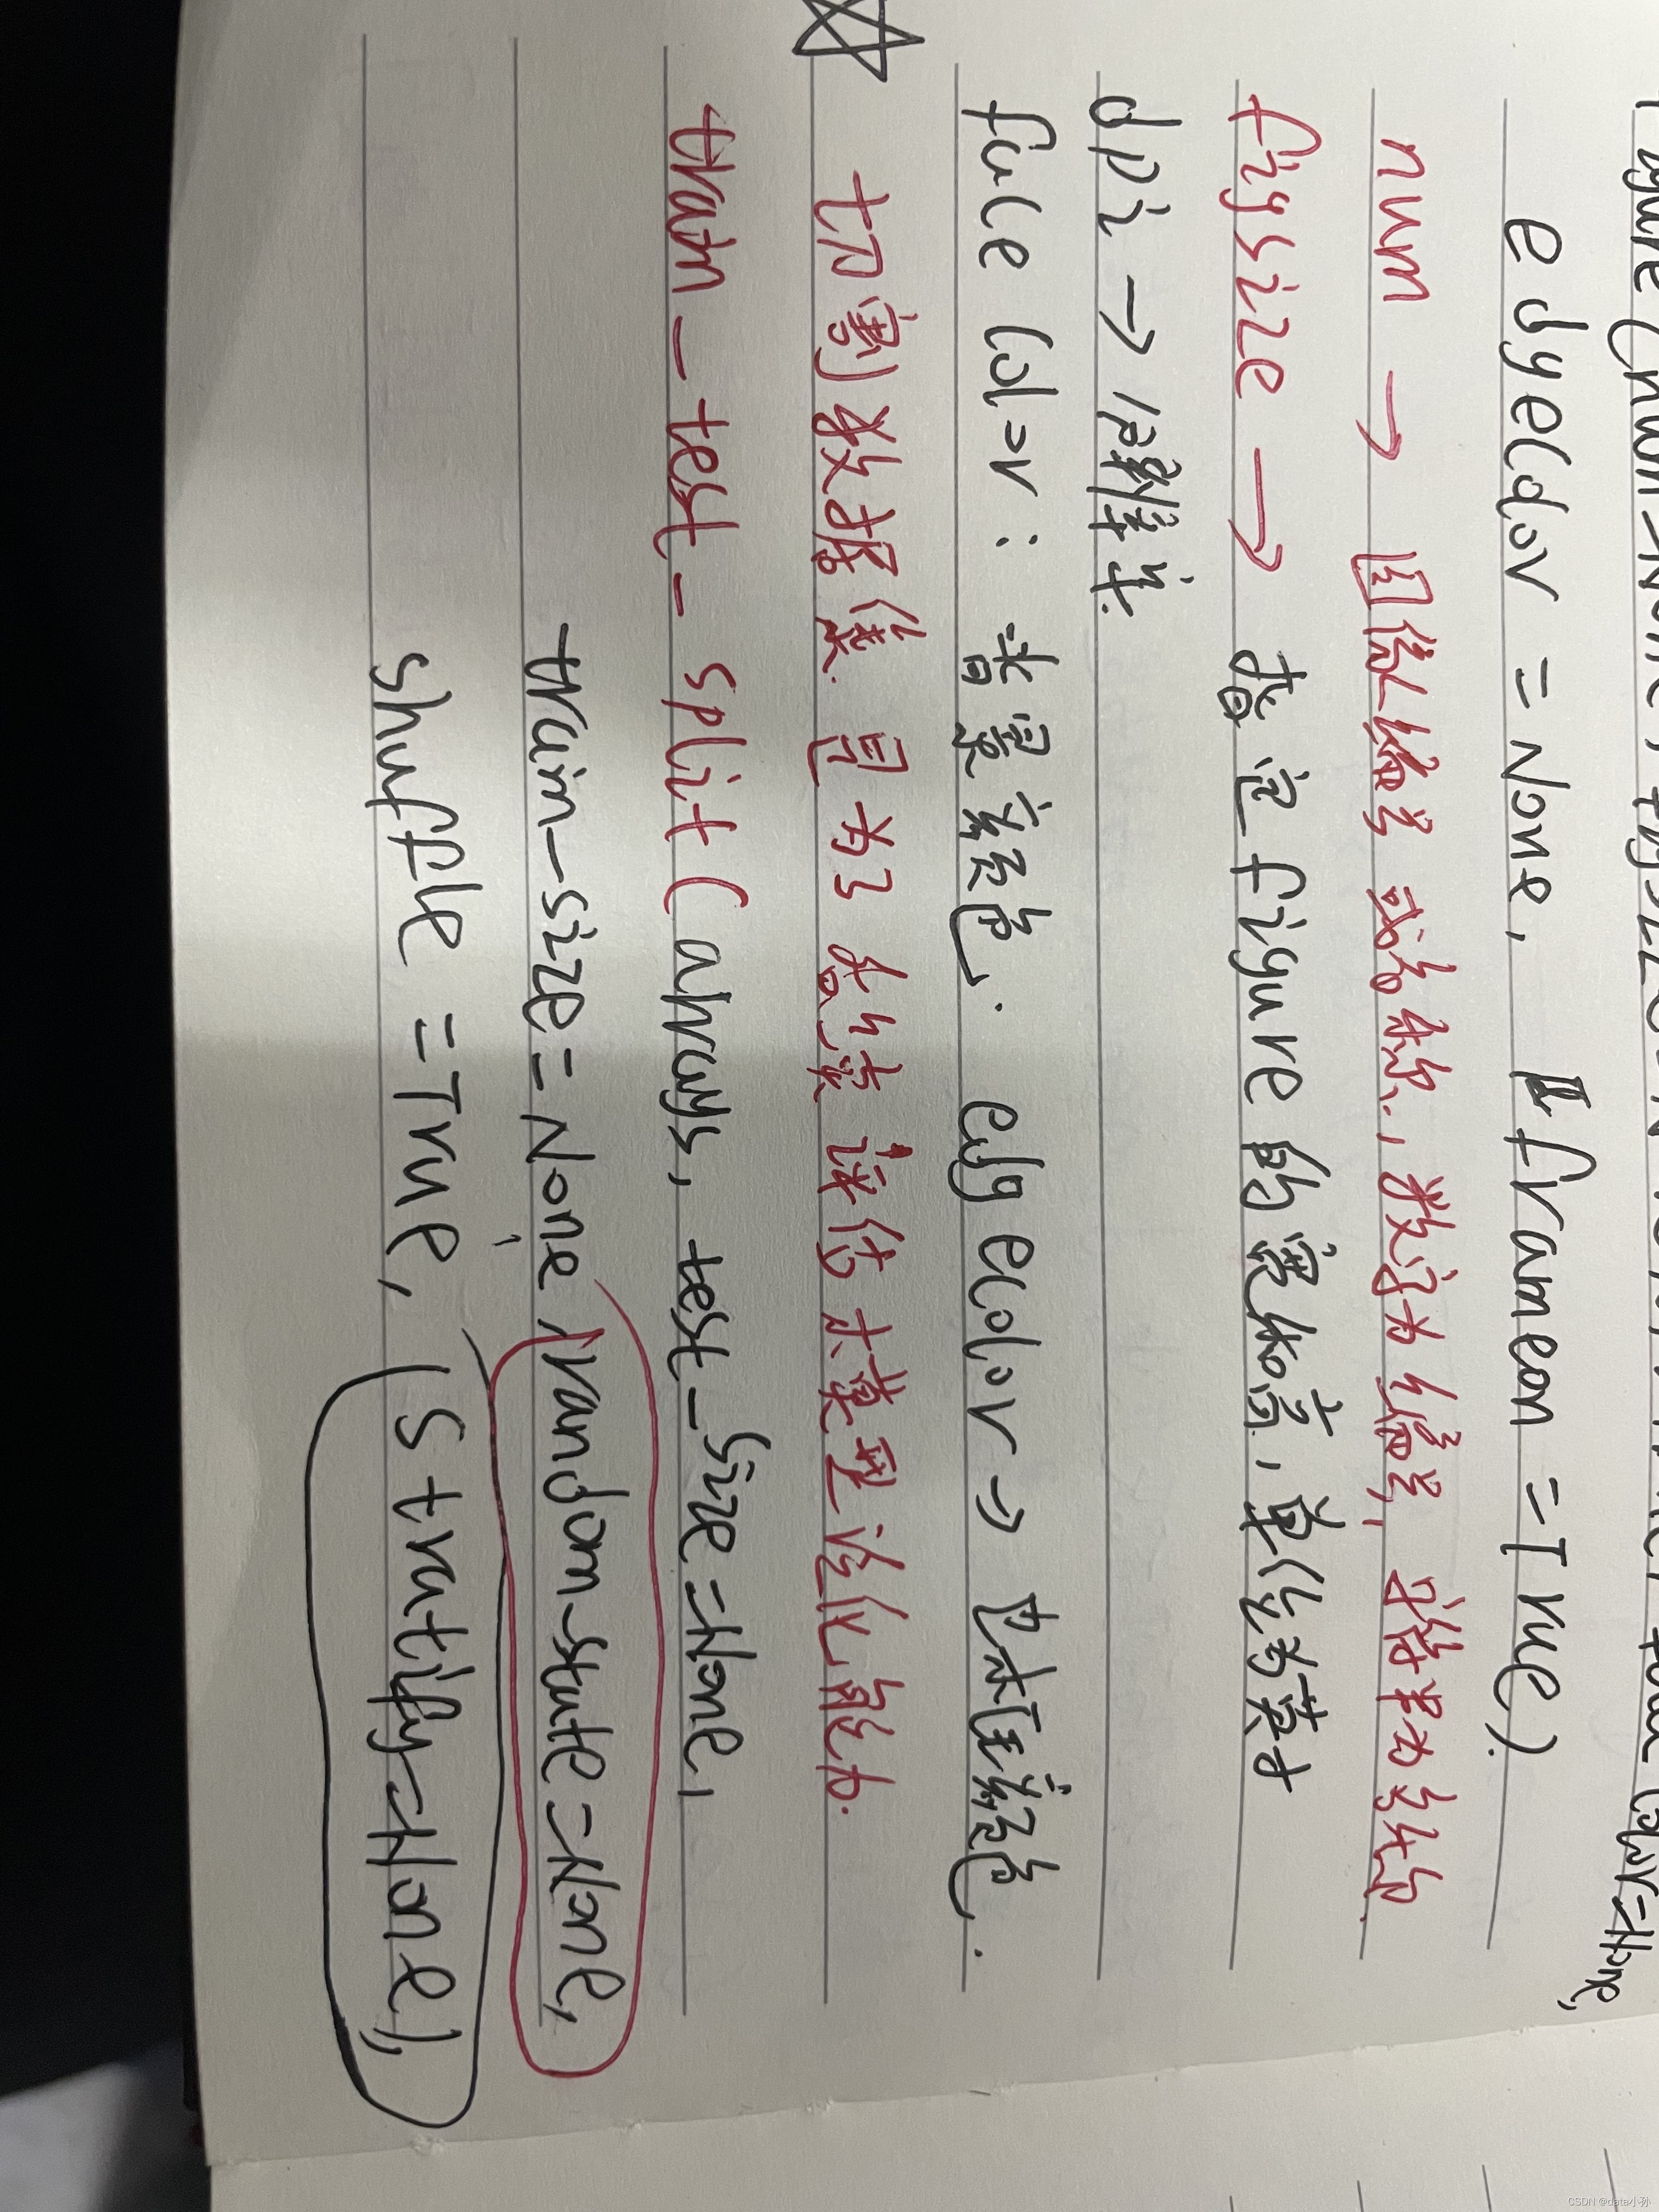 figure(num=None, figsize=None, dpi=None, facecolor=None,
edgecolor = None, frameon = True).
num → 图像编号或名称, 数字为编号, 字符串为名称.
figsize → 指定figure的宽和高, 单位为英寸
dpi → 分辨率.
facecolor: 背景颜色. edgecolor → 边框颜色.
切割数据集是为了后续评估模型泛化能力.
train_test_split(arrays, test_size=None,
train_size=None, random_state=None,
shuffle=True, stratify=None),
CSDN @data小孙